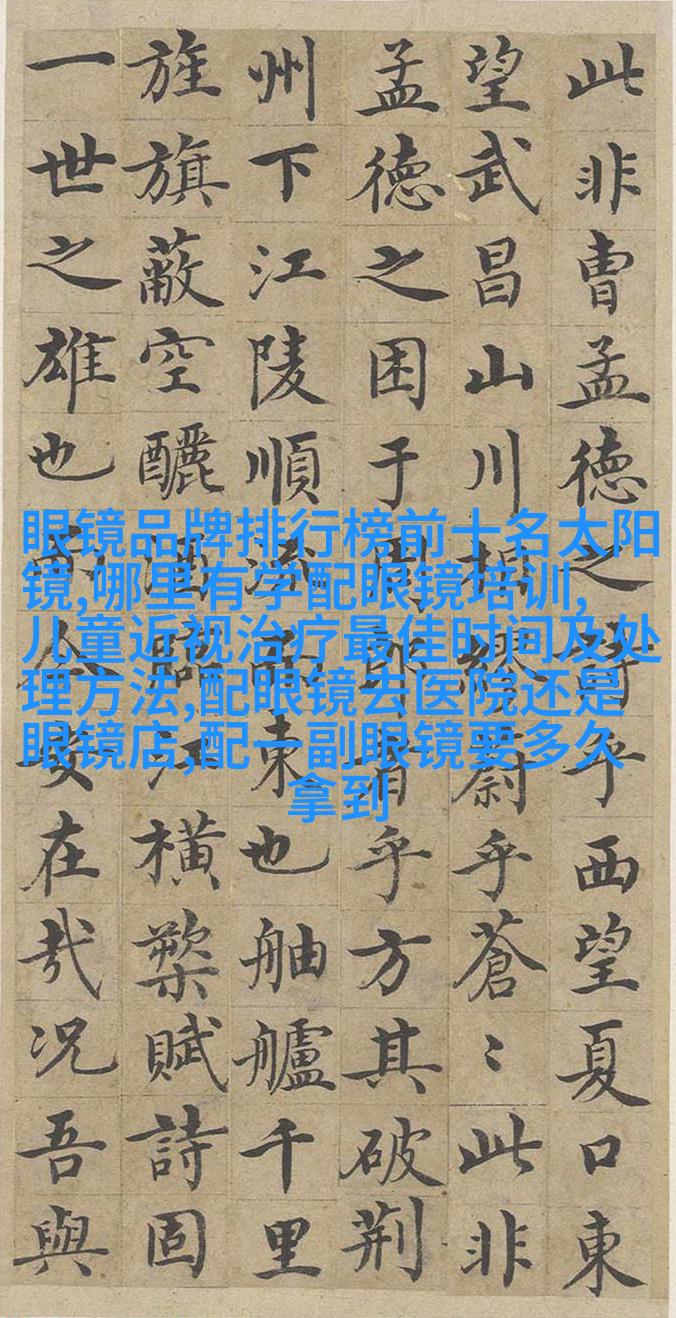 此非曹孟德之詩乎西望夏口東
望武昌山川相繆蔚乎蒼〻此非
孟德之困于周郎者乎方其破荊
州下江陵順流而東也舳艫千里
旌旗蔽空釃酒臨江橫槊賦詩固
一世之雄也而今安在哉況吾與
眼镜品牌排行榜前十名太阳
镜,哪里有学配眼镜培训,
儿童近视治疗最佳时间及处
理方法,配眼镜去医院还是
眼镜店,配一副眼镜要多久
拿到